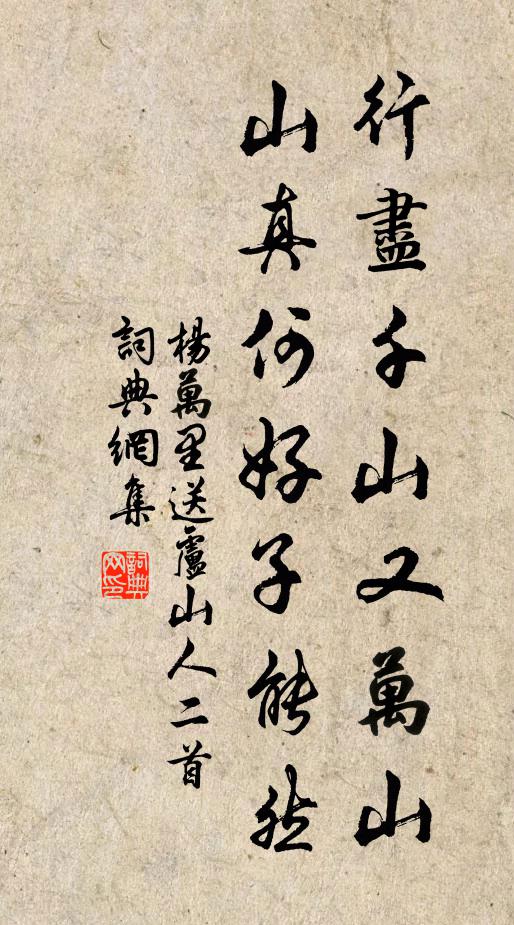 行盡千山又萬山
山真何好子能然
楊萬里送盧山人二首
詞典網集
詞典网印